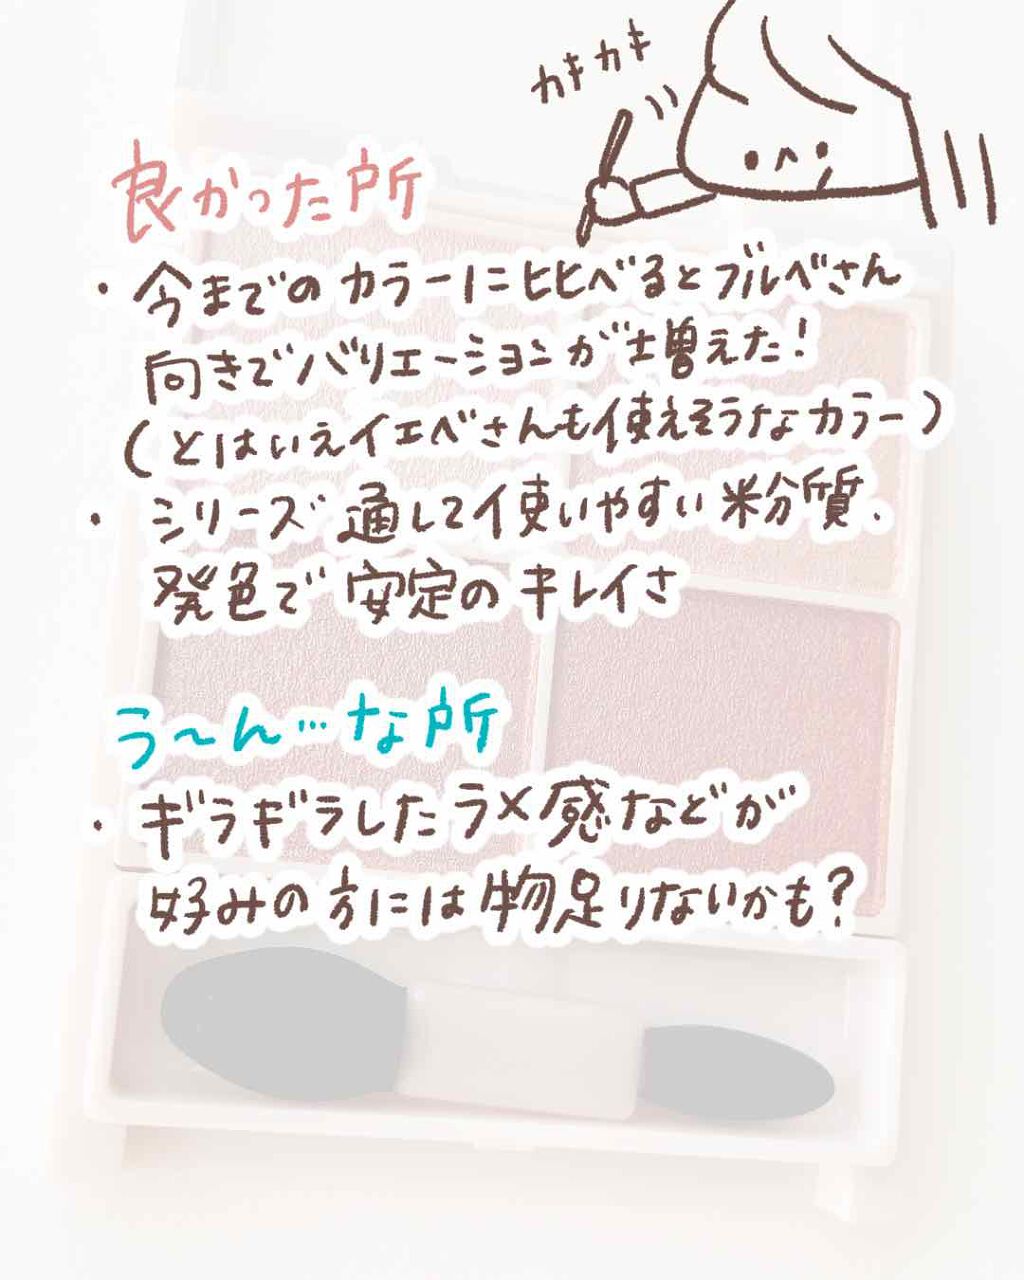 カキカキ
良かった所
・今までのカラーに比べるとブルベさん
向きでバリエーションが増えた!
(とはいえイエベさんも使えそうなカラー)
・シリーズ通して使いやすい粉質.
発色で安定のキレイさ
う〜ん…な所
・ギラギラしたラメ感などが
好みの方には物足りないかも?